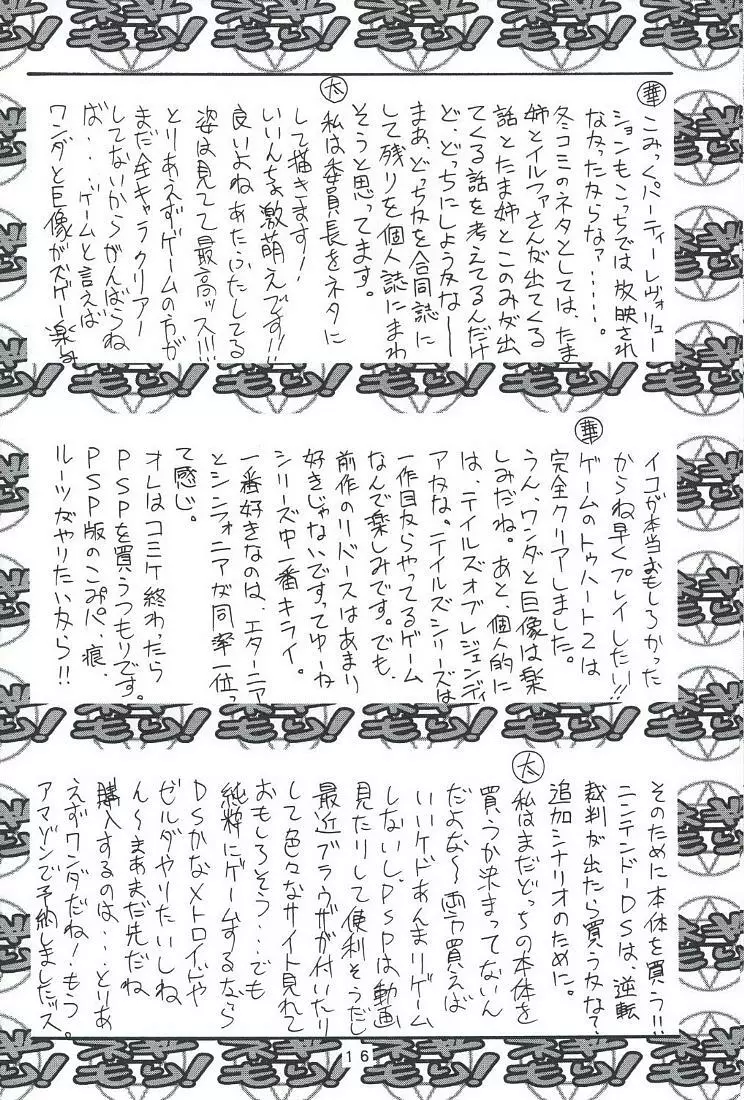 華
こみっくパーティーレヴォリュー
ションもこっちでは放映され
なかったからなァ・・・・。
冬コミのネタとしては、たま
姉とイルファさんが出てくる
話とたま姉とこのみが出
てくる話を考えてるんだけ
ど、どっちにしようかなー
まあ、どっちかを合同誌に
して残りを個人誌にまわ
そうと思ってます。
太
私は委員長をネタに
して描きます!
いいんちょ激萌えです!!
良いよねあたふたしてる
姿は見てて最高ッス!!!
とりあえずゲームの方が
まだ全キャラクリアー
してないからがんばらね
ば・・・ゲームと言えば
ワンダと巨像がスゲー楽み
イコが本当おもしろかった
からね早くプレイしたい!!
華
ゲームのトゥハート2は
完全クリアしました。
うん、ワンダと巨像は楽
しみだね。あと、個人的に
は、テイルズオブレジェンディ
アかな。テイルズシリーズは
一作目からやってるゲーム
なんで楽しみです。でも、
前作のリバースはあまり
好きじゃないですってゆーね
シリーズ中一番キライ。
一番好きなのは、エターニア
とシンフォニアが同率一位っ
て感じ。
オレはコミケ終わったら
PSPを買うつもりです。
PSP版のこみパ、痕、
ルーツがやりたいから!!
そのために本体を買う!!
ニンテンドーDSは、逆転
裁判が出たら買うかな?
追加シナリオのために。
太
私はまだどっちの本体を
買うか決まってないん
だよな〜両方買えば
いいケドあんまりゲーム
しないし、PSPは動画
見たりして便利そうだし
最近ブラウザが付いたり
して色々なサイト見れて
おもしろそう・・・でも
純粋にゲームするなら
DSかなメトロイドや
ゼルダやりたいしね
ん〜まあまだ先だね
購入するのは・・・とりあ
えずワンダだね!もう
アマゾンで予約しましたデス。
16